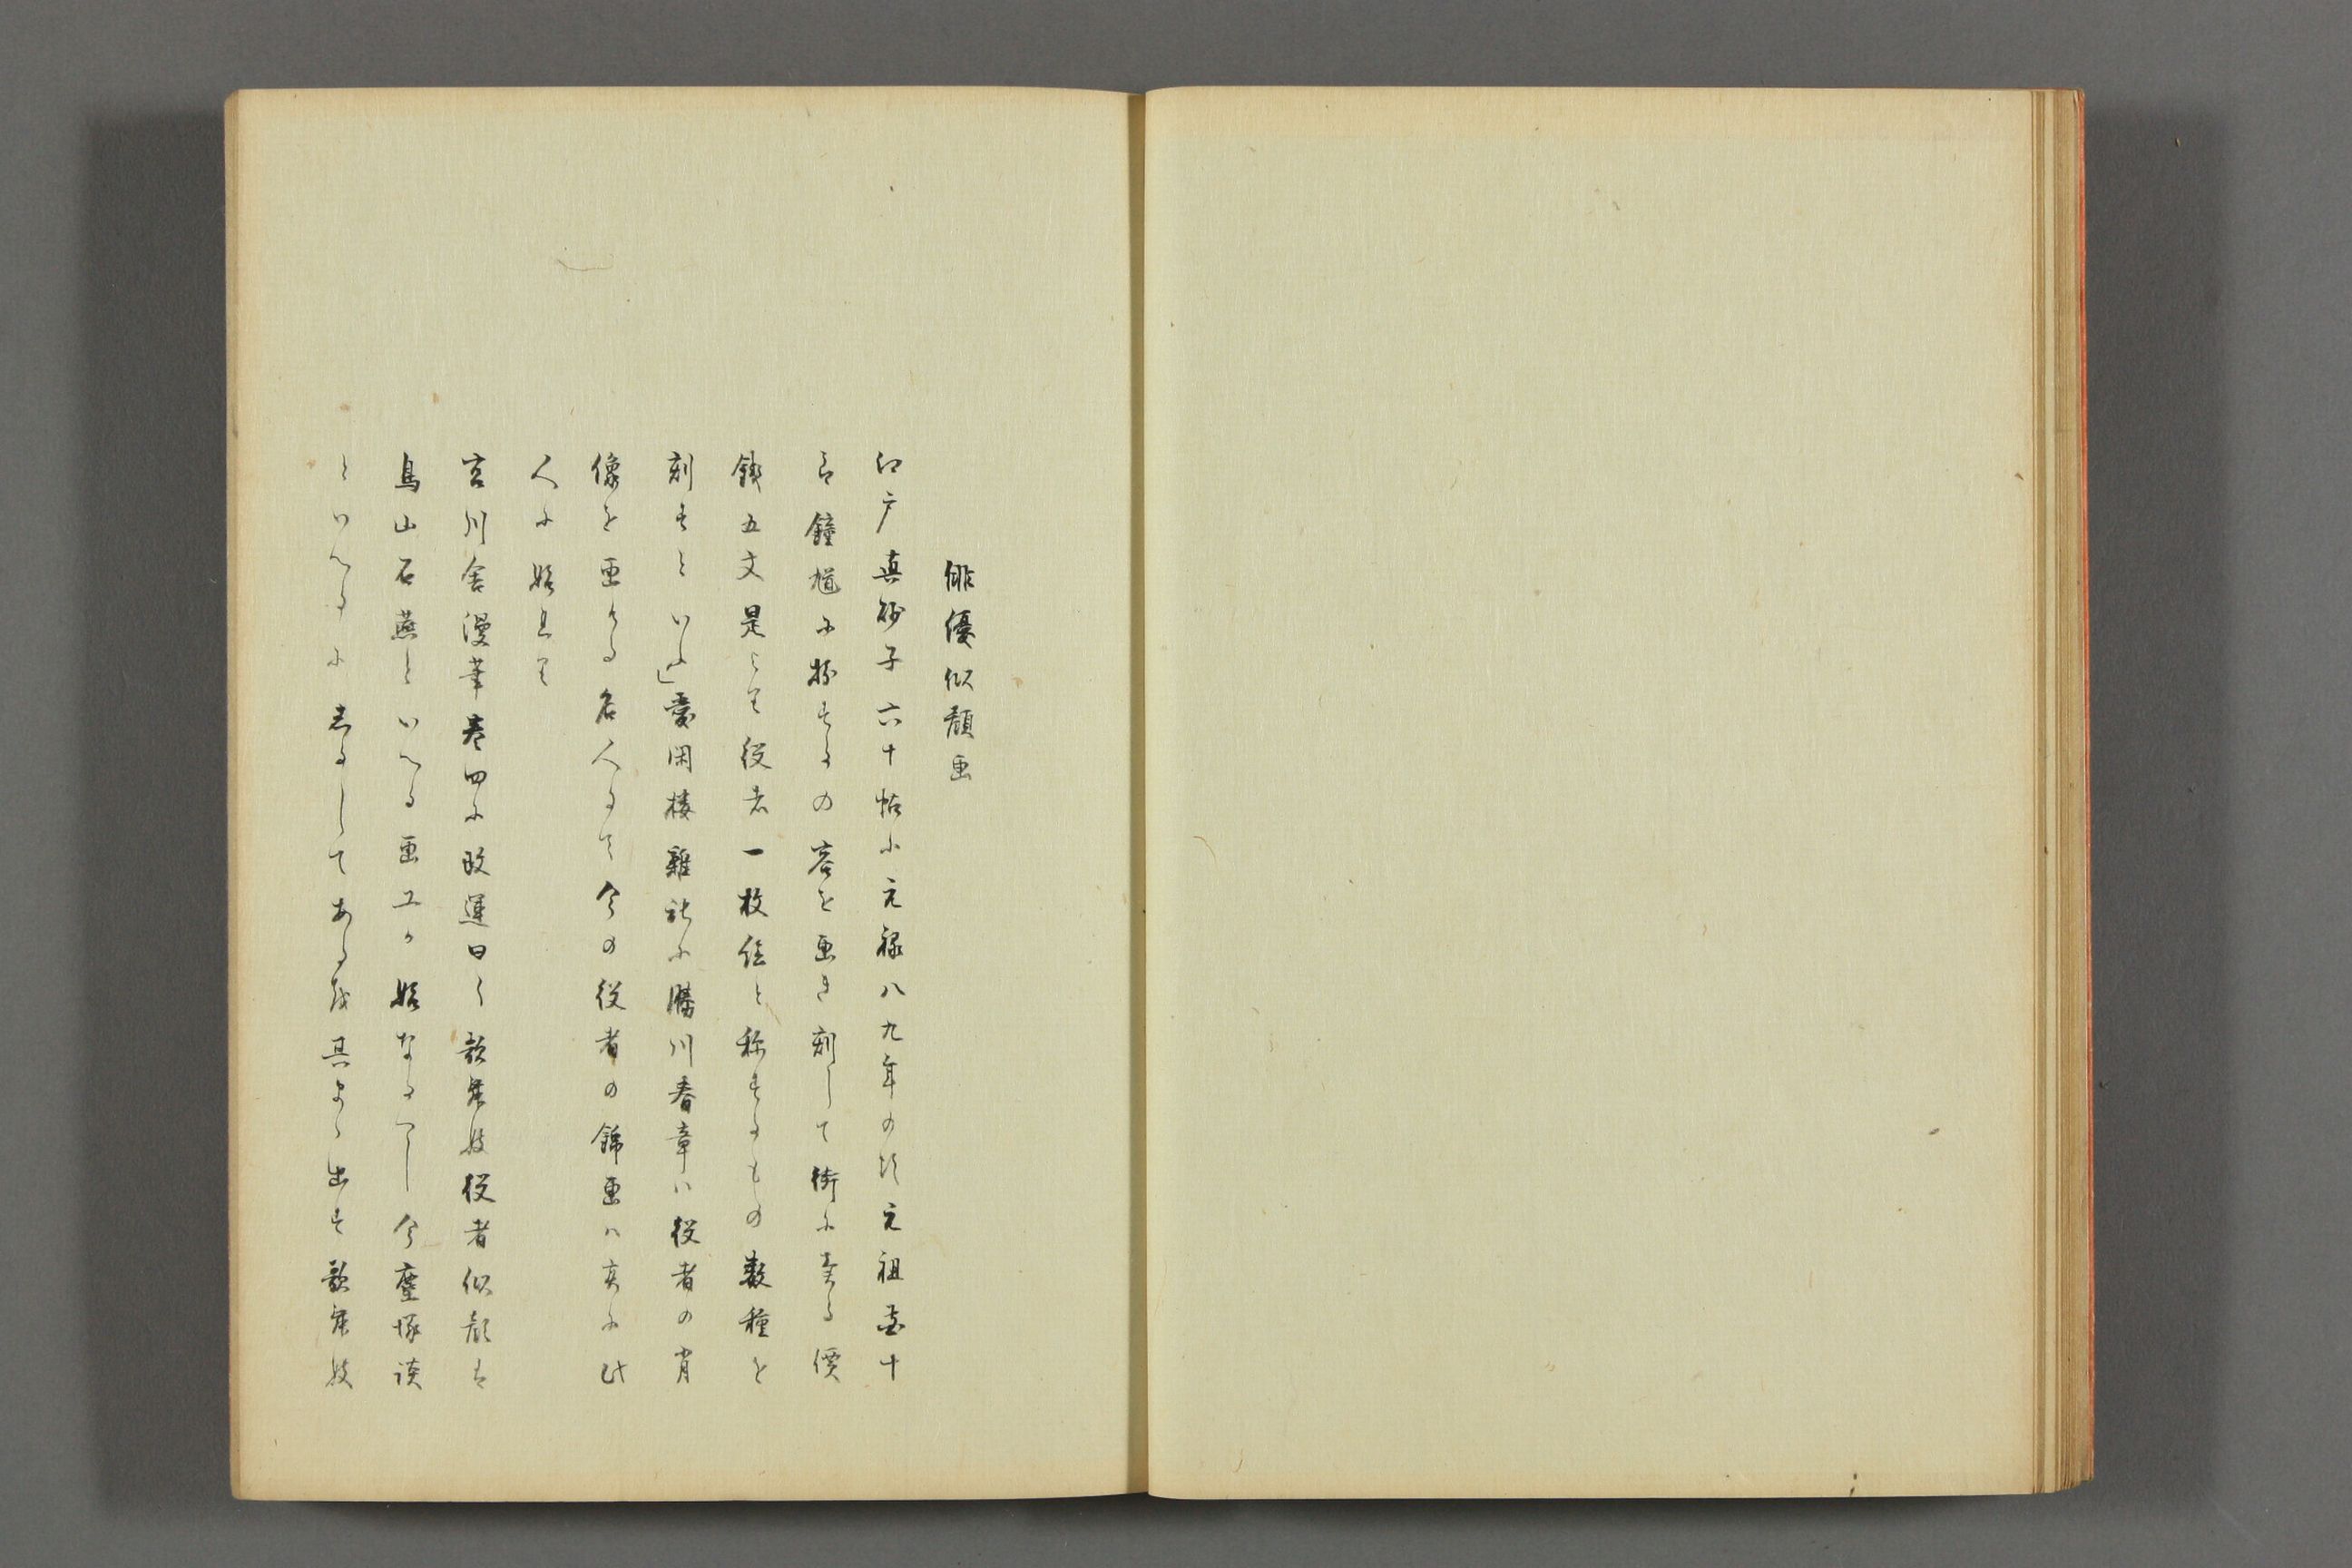 俳優似顔画
江戸真砂子六十帖小元禄八九年の頃元祖團十
郎鐘馗に扮するの容を画き刻して街に売る價
銭五文是より役者一枚絵と称するものの数種を
刻すといふ」愛閑楼雑記に勝川春章ハ役者の肖
像を画ける名人にて今の役者の錦画ハ実に此
人に始まり
宮川舎漫筆巻四に政運曰く歌舞妓役者似顔は
鳥山石燕といへる画工か始なるへし今塵塚談
といへるにしるしてある故其まゝ出す歌舞妓